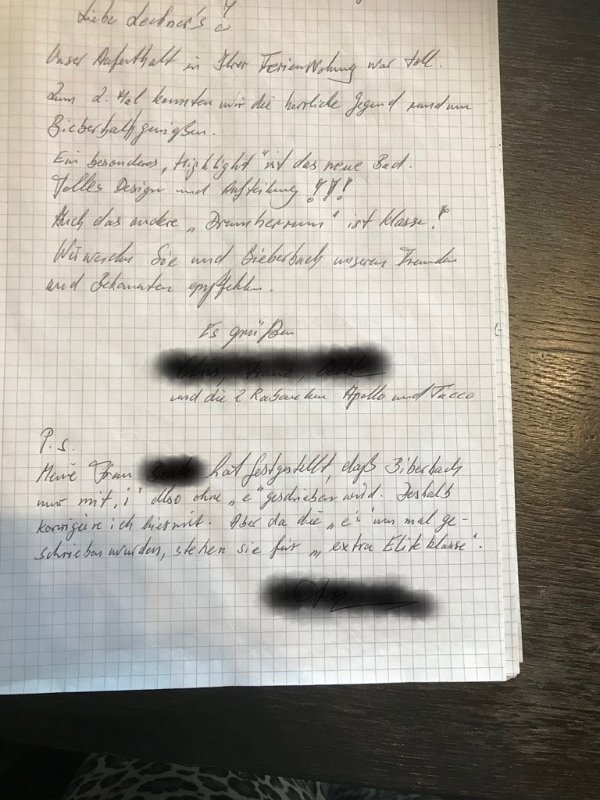 Liebe Lechner's!
Unser Aufenthalt in Ihrer Ferienwohnung war toll.
Zum 2. Mal konnten wir die herrliche Gegend rund um
Bieberbach genießen.
Ein besonderes „Highlight" ist das neue Bad.
Tolles Design und Aufteilung!!!
Auch das andere „Drumherrum" ist klasse!
Wir werden Sie und Bieberbach unseren Freunden
und Bekannten empfehlen.
Es grüßen
und die 2 Rabauken Apollo und Tacco
P.s.
Meine Frau hat festgestellt, daß Biberbach
nur mit „i" also ohne „e" geschrieben wird. Deshalb
korrigiere ich hiermit. Aber da die „e's" nun mal ge-
schrieben wurden, stehen sie für „extra Eliteklasse".